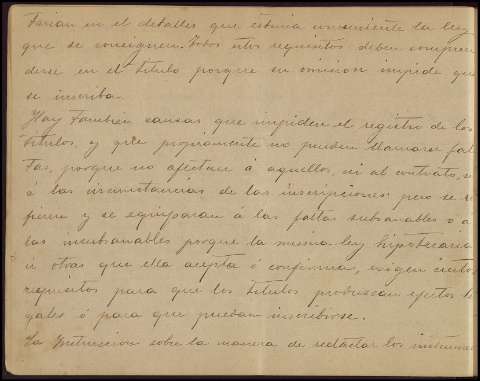 farian en el detalles que estima conveniente la ley
que se consignen. Todos estos requisitos deben compren
derse en el título porque su omisión impide que
se inscriba.
Hay también causas que impiden el registro de los
títulos, y que propiamente no pueden llamarse fal
tas, porque no afectan á aquellos, ni al contrato, ni
á las circunstancias de las inscripciones; pero se
y se equiparan á las faltas subsanables ó á
las insubsanables porque la misma ley hipotecaria
ú otras que ella acepta ó confirma, exigen ciertos
requisitos para que los títulos produzcan efectos le
gales ó para que puedan inscribirse.
La Instrucción sobre la manera de redactar los instrumen